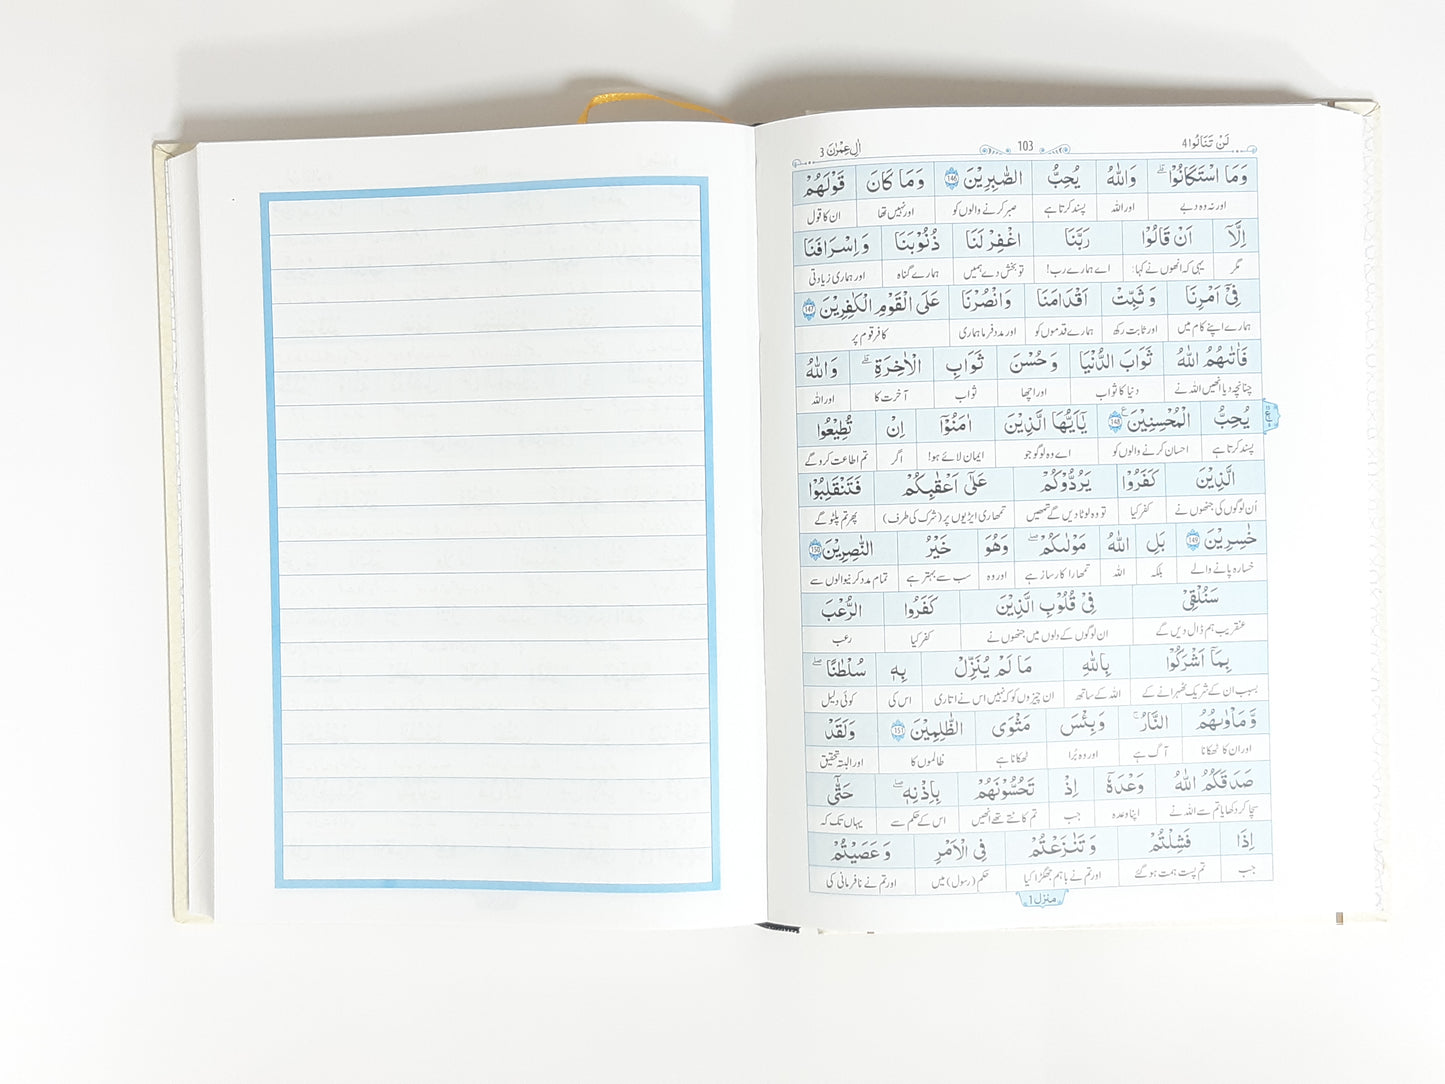 لَنۡ تَنَالُوا 4 103 اٰلِ عِمۡرٰنَ 3
وَمَا اسۡتَكَانُوۡا ؕ وَاللّٰهُ يُحِبُّ الصّٰبِرِيۡنَ 146 وَمَا كَانَ قَوۡلَهُمۡ
اور نہ وہ دبے اور اللہ پسند کرتا ہے صبر کرنے والوں کو اور نہیں تھا ان کا قول
اِلَّاۤ اَنۡ قَالُوۡا رَبَّنَا اغۡفِرۡ لَنَا ذُنُوۡبَنَا وَاِسۡرَافَنَا
مگر یہی کہ انھوں نے کہا: اے ہمارے رب! تو بخش دے ہمیں ہمارے گناہ اور ہماری زیادتی
فِىۡۤ اَمۡرِنَا وَثَبِّتۡ اَقۡدَامَنَا وَانۡصُرۡنَا عَلَى الۡقَوۡمِ الۡكٰفِرِيۡنَ 147
ہمارے اپنے کام میں اور ثابت رکھ ہمارے قدموں کو اور مدد فرما ہماری کافر قوم پر
فَاٰتٰٮهُمُ اللّٰهُ ثَوَابَ الدُّنۡيَا وَحُسۡنَ ثَوَابِ الۡاٰخِرَةِ ؕ وَاللّٰهُ
چنانچہ دیا انھیں اللہ نے دنیا کا ثواب اور اچھا ثواب آخرت کا اور اللہ
يُحِبُّ الۡمُحۡسِنِيۡنَ 148 يٰۤاَيُّهَا الَّذِيۡنَ اٰمَنُوۡۤا اِنۡ تُطِيۡعُوا
پسند کرتا ہے احسان کرنے والوں کو اے وہ لوگو جو ایمان لائے ہو! اگر تم اطاعت کرو گے
الَّذِيۡنَ كَفَرُوۡا يَرُدُّوۡكُمۡ عَلٰٓى اَعۡقٰبِكُمۡ فَتَنۡقَلِبُوۡا
اُن لوگوں کی جنھوں نے کفر کیا تو وہ لوٹا دیں گے تمھیں تمھاری ایڑیوں پر (شرک کی طرف) پھر تم پلٹو گے
خٰسِرِيۡنَ 149 بَلِ اللّٰهُ مَوۡلٰٮكُمۡ ۚ وَهُوَ خَيۡرُ النّٰصِرِيۡنَ 150
خسارہ پانے والے بلکہ اللہ تمھارا کارساز ہے اور وہ سب سے بہتر ہے تمام مدد کرنیوالوں سے
سَنُلۡقِىۡ فِىۡ قُلُوۡبِ الَّذِيۡنَ كَفَرُوا الرُّعۡبَ
عنقریب ہم ڈال دیں گے ان لوگوں کے دلوں میں جنھوں نے کفر کیا رعب
بِمَاۤ اَشۡرَكُوۡا بِاللّٰهِ مَا لَمۡ يُنَزِّلۡ بِهٖ سُلۡطٰنًا ۚ
بسبب ان کے شریک ٹھہرانے کے اللہ کے ساتھ ان چیزوں کو کہ نہیں اس نے اتاری اس کی کوئی دلیل
وَمَاۡوٰٮهُمُ النَّارُ ؕ وَبِئۡسَ مَثۡوَى الظّٰلِمِيۡنَ 151 وَلَقَدۡ
اور ان کا ٹھکانا آگ ہے اور وہ بُرا ٹھکانا ہے ظالموں کا اور البتہ تحقیق
صَدَقَكُمُ اللّٰهُ وَعۡدَهٗۤ اِذۡ تَحُسُّوۡنَهُمۡ بِاِذۡنِهٖ ۚ حَتّٰٓى
سچا کر دکھایا تم سے اللہ نے اپنا وعدہ جب تم کاٹتے تھے انھیں اس کے حکم سے یہاں تک کہ
اِذَا فَشِلۡتُمۡ وَتَنٰزَعۡتُمۡ فِى الۡاَمۡرِ وَعَصَيۡتُمۡ
جب تم پست ہمت ہو گئے اور تم نے باہم جھگڑا کیا حکم (رسول) میں اور تم نے نافرمانی کی
منزل 1